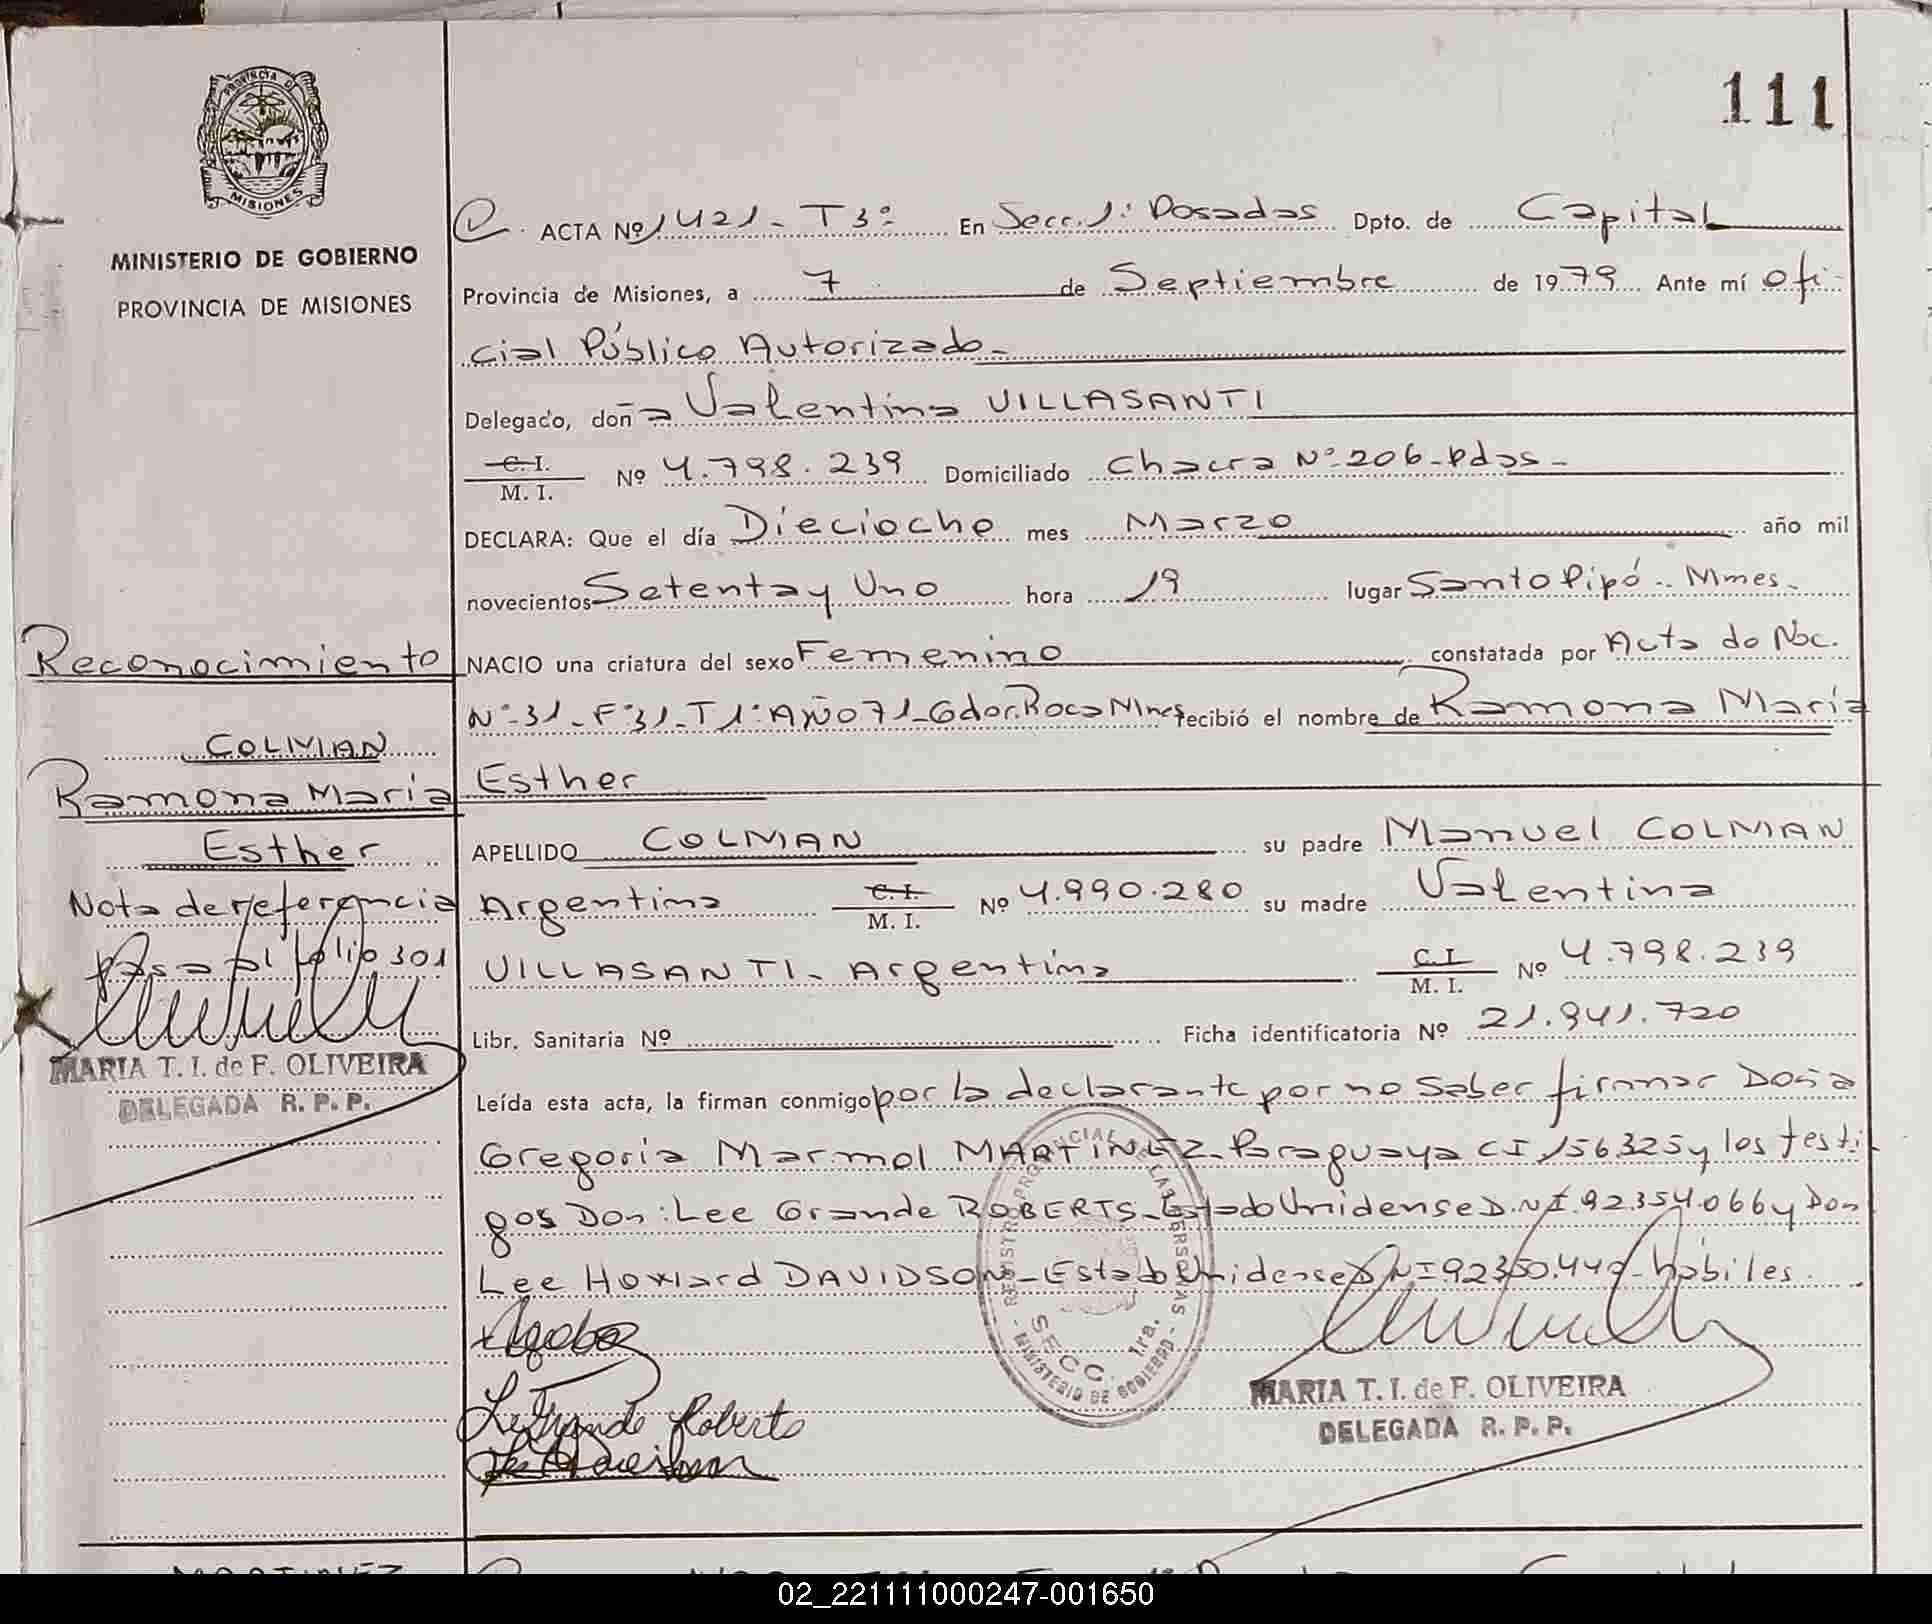 111
PROVINCIA DE
MISIONES
MINISTERIO DE GOBIERNO
PROVINCIA DE MISIONES
ACTA Nº 1421 - T3º En Secc. 1ª Posadas Dpto. de Capital
Provincia de Misiones, a 7 de Septiembre de 1979 Ante mí Ofi-
cial Público Autorizado -
Delegado, doña Valentina VILLASANTI
C. I.
M. I. Nº 4.798.239 Domiciliado Chacra Nº 206 - Pdas -
DECLARA: Que el día Dieciocho mes Marzo año mil
novecientos Setenta y Uno hora 19 lugar Santo Pipó - Mnes -
NACIO una criatura del sexo Femenino constatada por Acta de Nac.
Nº 31 - Fº 31 - T1º Año 71 - Gdor. Roca Mnes recibió el nombre de Ramona María
Esther
APELLIDO COLMAN su padre Manuel COLMAN
Argentina C. I.
M. I. Nº 4.990.280 su madre Valentina
VILLASANTI - Argentina C. I.
M. I. Nº 4.798.239
Libr. Sanitaria Nº Ficha identificatoria Nº 21.941.720
Leída esta acta, la firman conmigo por la declarante por no Saber firmar Doña
Gregoria Marmol MARTINEZ - Paraguaya CI 156.325 y los testi-
gos Don: Lee Grande ROBERTS - Estado Unidense D.N.I. 92.354.066 y Don
Lee Howard DAVIDSON - Estado Unidense DNI 92350.449 - hábiles.
LeGrande Roberts
MARIA T. I. de F. OLIVEIRA
DELEGADA R. P. P.
REGISTRO PROVINCIAL DE LAS PERSONAS
SECC. 1ra.
MINISTERIO DE GOBIERNO
Reconocimiento
COLMAN
Ramona María
Esther
Nota de referencia
pasa al folio 301
MARIA T. I. de F. OLIVEIRA
DELEGADA R. P. P.
MARTINEZ
02_221111000247-001650